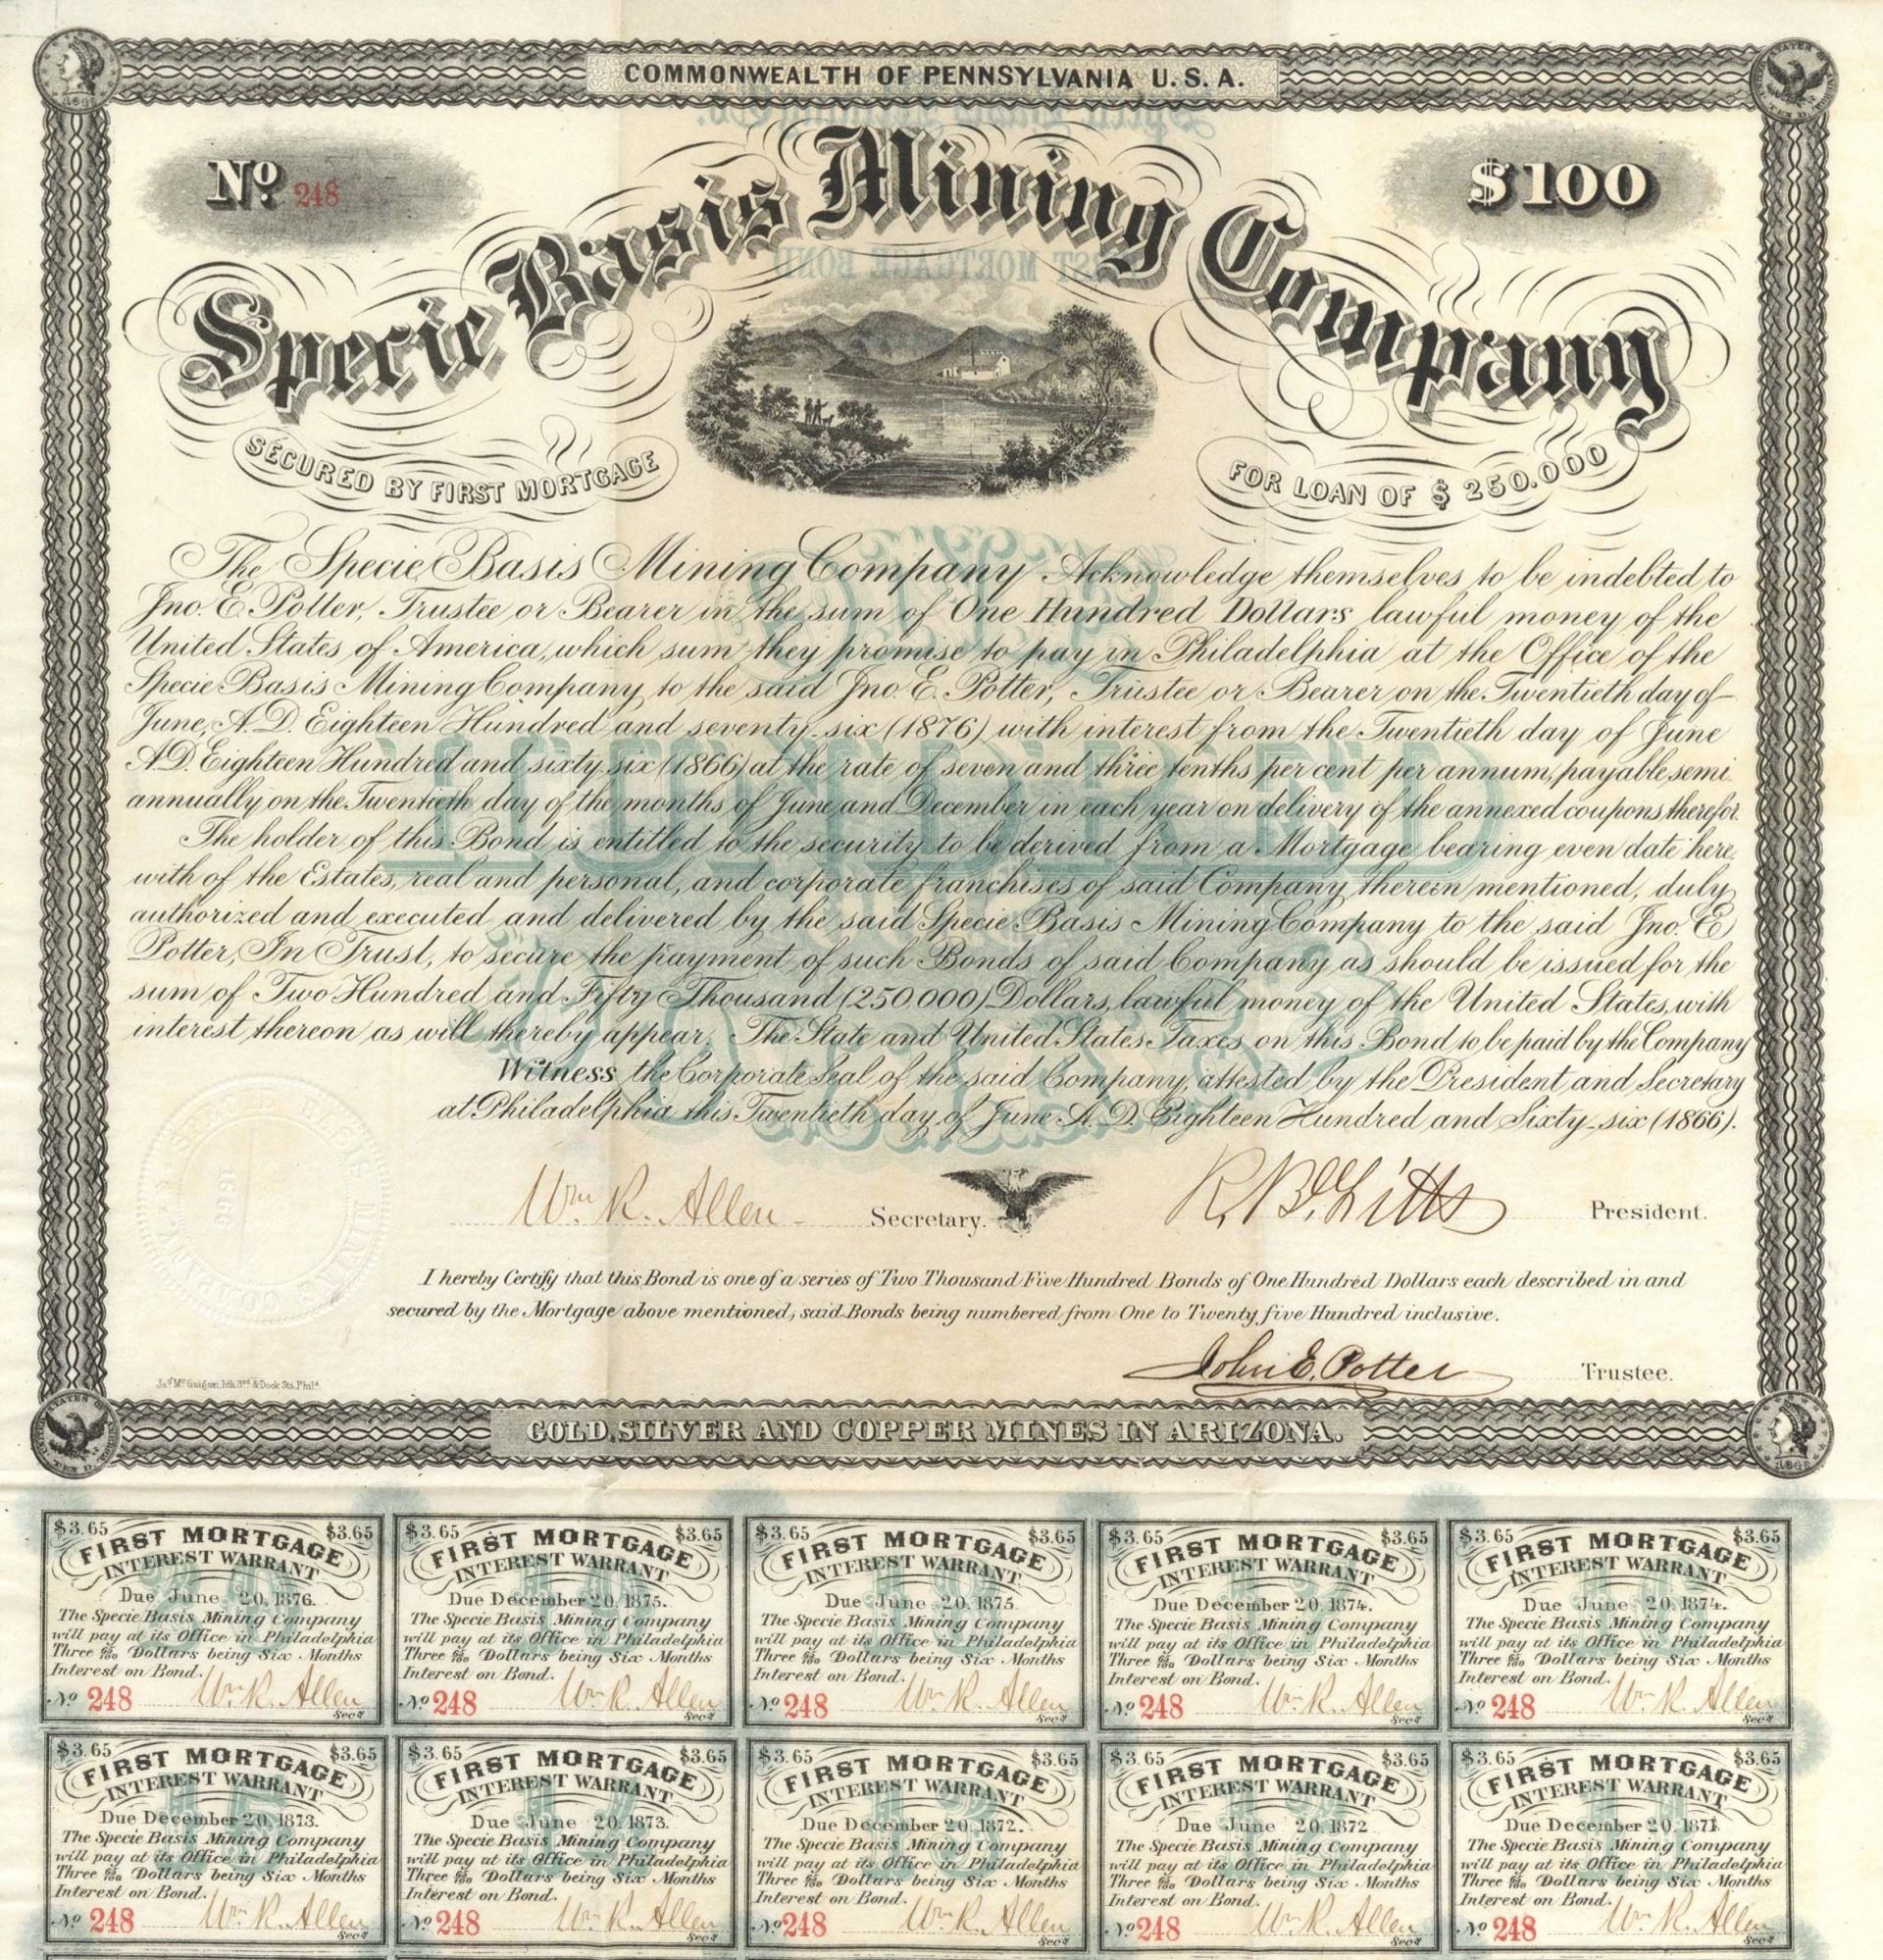 COMMONWEALTH OF PENNSYLVANIA U.S.A.
No. 248
$100
Specie Basis Mining Company
SECURED BY FIRST MORTGAGE
FOR LOAN OF $250.000
The Specie Basis Mining Company Acknowledge themselves to be indebted to
Jno. E. Potter, Trustee or Bearer in the sum of One Hundred Dollars lawful money of the
United States of America, which sum they promise to pay in Philadelphia at the Office of the
Specie Basis Mining Company, to the said Jno. E. Potter, Trustee or Bearer on the Twentieth day of
June, A.D. Eighteen Hundred and seventy-six (1876) with interest from the Twentieth day of June
A.D. Eighteen Hundred and sixty-six (1866) at the rate of seven and three tenths per cent per annum, payable semi
annually on the Twentieth day of the months of June and December in each year on delivery of the annexed coupons therefor.
The holder of this Bond is entitled to the security to be derived from a Mortgage bearing even date here
with of the Estates, real and personal, and corporate franchises of said Company, therein mentioned, duly
authorized and executed and delivered by the said Specie Basis Mining Company to the said Jno. E
Potter, In Trust, to secure the payment of such Bonds of said Company as should be issued for the
sum of Two Hundred and Fifty Thousand (250.000) Dollars, lawful money of the United States, with
interest thereon as will thereby appear. The State and United States Taxes on this Bond to be paid by the Company
Witness the Corporate Seal of the said Company, attested by the President and Secretary
at Philadelphia this Twentieth day of June A.D. Eighteen Hundred and Sixty-six (1866).
SPECIE BASIS MINING COMPANY 1866
Wm. R. Allen Secretary.
President.
I hereby Certify that this Bond is one of a series of Two Thousand Five Hundred Bonds of One Hundred Dollars each described in and
secured by the Mortgage above mentioned, said Bonds being numbered from One to Twenty five Hundred inclusive.
John E. Potter Trustee.
Jas. McGuigan, lith. 3rd & Dock Sts. Phila.
GOLD, SILVER AND COPPER MINES IN ARIZONA.
$3.65 $3.65
FIRST MORTGAGE
INTEREST WARRANT
Due June 20, 1876.
The Specie Basis Mining Company
will pay at its Office in Philadelphia
Three 65/100 Dollars being Six Months
Interest on Bond.
No 248 Wm R. Allen
Secy
$3.65 $3.65
FIRST MORTGAGE
INTEREST WARRANT
Due December 20, 1875.
The Specie Basis Mining Company
will pay at its Office in Philadelphia
Three 65/100 Dollars being Six Months
Interest on Bond.
No 248 Wm R. Allen
Secy
$3.65 $3.65
FIRST MORTGAGE
INTEREST WARRANT
Due June 20, 1875.
The Specie Basis Mining Company
will pay at its Office in Philadelphia
Three 65/100 Dollars being Six Months
Interest on Bond.
No 248 Wm R. Allen
Secy
$3.65 $3.65
FIRST MORTGAGE
INTEREST WARRANT
Due December 20, 1874.
The Specie Basis Mining Company
will pay at its Office in Philadelphia
Three 65/100 Dollars being Six Months
Interest on Bond.
No 248 Wm R. Allen
Secy
$3.65 $3.65
FIRST MORTGAGE
INTEREST WARRANT
Due June 20, 1874.
The Specie Basis Mining Company
will pay at its Office in Philadelphia
Three 65/100 Dollars being Six Months
Interest on Bond.
No 248 Wm R. Allen
Secy
$3.65 $3.65
FIRST MORTGAGE
INTEREST WARRANT
Due December 20, 1873.
The Specie Basis Mining Company
will pay at its Office in Philadelphia
Three 65/100 Dollars being Six Months
Interest on Bond.
No 248 Wm R. Allen
Secy
$3.65 $3.65
FIRST MORTGAGE
INTEREST WARRANT
Due June 20, 1873.
The Specie Basis Mining Company
will pay at its Office in Philadelphia
Three 65/100 Dollars being Six Months
Interest on Bond.
No 248 Wm R. Allen
Secy
$3.65 $3.65
FIRST MORTGAGE
INTEREST WARRANT
Due December 20, 1872.
The Specie Basis Mining Company
will pay at its Office in Philadelphia
Three 65/100 Dollars being Six Months
Interest on Bond.
No 248 Wm R. Allen
Secy
$3.65 $3.65
FIRST MORTGAGE
INTEREST WARRANT
Due June 20, 1872
The Specie Basis Mining Company
will pay at its Office in Philadelphia
Three 65/100 Dollars being Six Months
Interest on Bond.
No 248 Wm R. Allen
Secy
$3.65 $3.65
FIRST MORTGAGE
INTEREST WARRANT
Due December 20, 1871.
The Specie Basis Mining Company
will pay at its Office in Philadelphia
Three 65/100 Dollars being Six Months
Interest on Bond.
No 248 Wm R. Allen
Secy